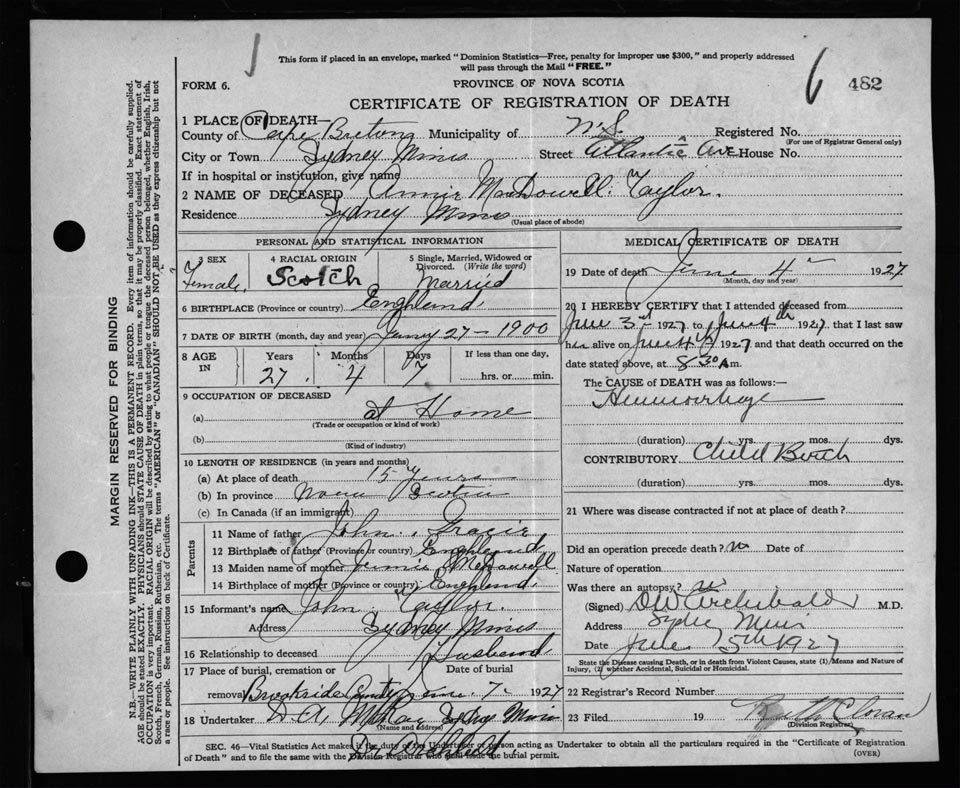 1
This form if placed in an envelope, marked "Dominion Statistics—Free, penalty for improper use $300," and properly addressed
will pass through the Mail "FREE."
6 482
FORM 6. PROVINCE OF NOVA SCOTIA
CERTIFICATE OF REGISTRATION OF DEATH
1 PLACE OF DEATH—
County of Cape Breton Municipality of N.S. Registered No.
(For use of Registrar General only)
City or Town Sydney Mines Street Atlantic Ave House No.
If in hospital or institution, give name
2 NAME OF DECEASED Annie MacDowell Taylor.
Residence Sydney Mines
(Usual place of abode)
PERSONAL AND STATISTICAL INFORMATION
3 SEX 4 RACIAL ORIGIN 5 Single, Married, Widowed or
Divorced. (Write the word)
Female, Scotch Married
6 BIRTHPLACE (Province or country) England,
7 DATE OF BIRTH (month, day and year) 27 - 1900
8 AGE IN Years Months Days If less than one day,
27. 4 7 hrs. or min.
9 OCCUPATION OF DECEASED
(a) at Home
(Trade or occupation or kind of work)
(b)
(Kind of industry)
10 LENGTH OF RESIDENCE (in years and months)
(a) At place of death 15 Years
(b) In province Nova Scotia
(c) In Canada (if an immigrant)
Parents
11 Name of father John
12 Birthplace of father (Province or country) England
13 Maiden name of mother McDowell
14 Birthplace of mother (Province or country) England,
15 Informant's name John Taylor.
Address Sydney Mines
16 Relationship to deceased Husband,
17 Place of burial, cremation or Date of burial
removal Brookside June 7 - 1927
18 Undertaker D. A. Sydney Mines
(Name and address)
MEDICAL CERTIFICATE OF DEATH
19 Date of death June 4 1927
(Month, day and year)
20 I HEREBY CERTIFY that I attended deceased from
June 3rd 1927 to June 4th 1927, that I last saw
her alive on June 4th 1927 and that death occurred on the
date stated above, at 8.30 A m.
The CAUSE OF DEATH was as follows:—
Hemmorhage
(duration) yrs. mos. dys.
CONTRIBUTORY Child Birth
(duration) yrs. mos. dys.
21 Where was disease contracted if not at place of death?
Did an operation precede death? no Date of
Nature of operation
Was there an autopsy? no
(Signed) DW Archibald M.D.
Address Sydney Mines
Date June 5th 1927
State the Disease causing Death, or in death from Violent Causes, state (1) Means and Nature of
Injury, (2) whether Accidental, Suicidal or Homicidal.
22 Registrar's Record Number
23 Filed 19 Ruth
(Division Registrar)
Dr. Archibald
SEC. 46—Vital Statistics Act makes it the duty of the Undertaker or person acting as Undertaker to obtain all the particulars required in the "Certificate of Registration
of Death" and to file the same with the Division Registrar who shall issue the burial permit. (OVER)
MARGIN RESERVED FOR BINDING
N.B.—WRITE PLAINLY WITH UNFADING INK—THIS IS A PERMANENT RECORD. Every item of information should be carefully supplied.
AGE should be stated EXACTLY. PHYSICIANS should STATE CAUSE OF DEATH in plain terms, so that it may be properly classified. Exact statement of
OCCUPATION is very important. RACIAL ORIGIN will be described by stating to what people or tongue the deceased person belonged, whether English, Irish,
Scotch, French, German, Russian, Ruthenian, etc. The terms "AMERICAN" or "CANADIAN" SHOULD NOT BE USED as they express citizenship but not
a race or people. See instructions on back of Certificate.